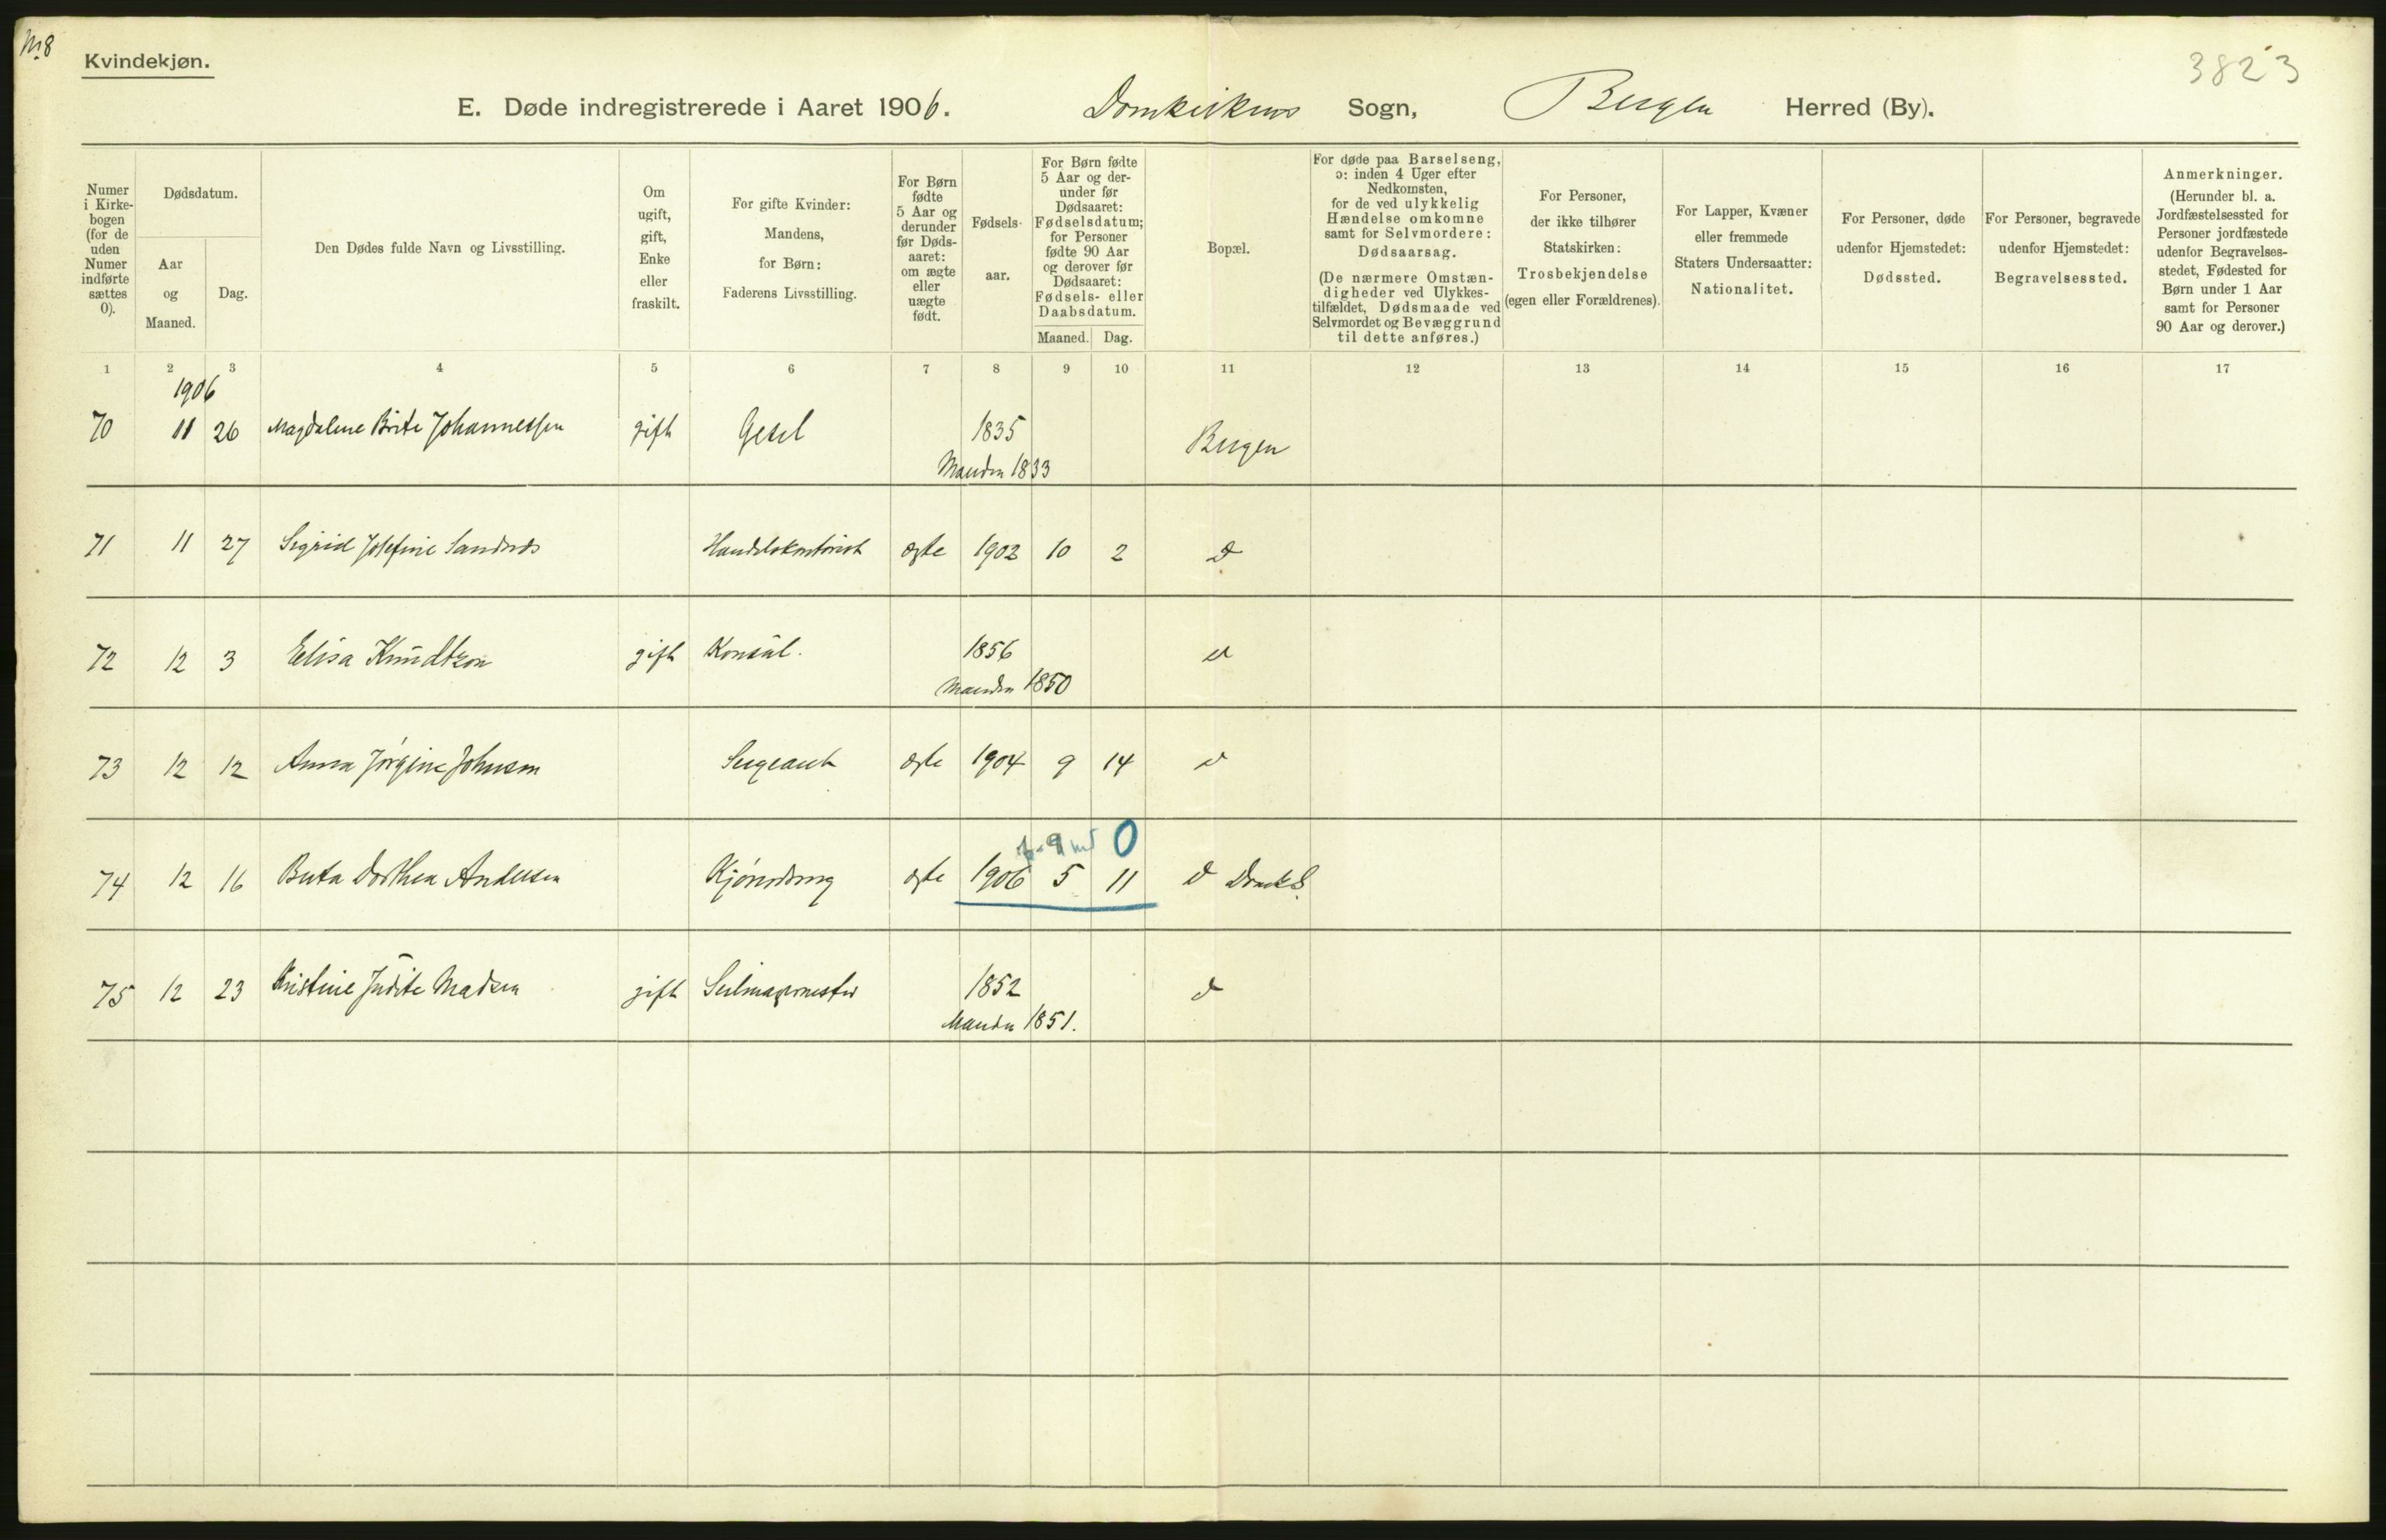 No 8
Kvindekjøn.
3823
E. Døde indregistrerede i Aaret 1906. Domkirkens Sogn, Bergen Herred (By).
Numer i Kirkebogen (for de uden Numer indførte sættes 0).
Dødsdatum.
Aar og Maaned.
Dag.
Den Dødes fulde Navn og Livsstilling.
Om ugift, gift, Enke eller fraskilt.
For gifte Kvinder: Mandens, for Børn: Faderens Livsstilling.
For Børn fødte 5 Aar og derunder før Dødsaaret: om ægte eller uægte født.
Fødselsaar.
For Børn fødte 5 Aar og derunder før Dødsaaret: Fødselsdatum; for Personer fødte 90 Aar og derover før Dødsaaret: Fødsels- eller Daabsdatum.
Maaned. Dag.
Bopæl.
For døde paa Barselseng, ɔ: inden 4 Uger efter Nedkomsten, for de ved ulykkelig Hændelse omkomne samt for Selvmordere: Dødsaarsag. (De nærmere Omstændigheder ved Ulykkestilfældet, Dødsmaade ved Selvmordet og Bevæggrund til dette anføres.)
For Personer, der ikke tilhører Statskirken: Trosbekjendelse (egen eller Forældrenes).
For Lapper, Kvæner eller fremmede Staters Undersaatter: Nationalitet.
For Personer, døde udenfor Hjemstedet: Dødssted.
For Personer, begravede udenfor Hjemstedet: Begravelsessted.
Anmerkninger. (Herunder bl. a. Jordfæstelsessted for Personer jordfæstede udenfor Begravelsesstedet, Fødested for Børn under 1 Aar samt for Personer 90 Aar og derover.)
1 2 3 4 5 6 7 8 9 10 11 12 13 14 15 16 17
1906
70 11 26 Magdalene Brite Johannessen gift Gesel 1835 Bergen
Manden 1833
71 11 27 Sigrid Josefine Sandnes Handelskontorist ægte 1902 10 2 d
72 12 3 Elisa Knudtzon gift Konsul. 1856 d
Manden 1850
73 12 12 Anna Jørgine Johnson Sergeant ægte 1904 9 14 d
0
74 12 16 Berta Dorthea Andersen Kjørerdreng ægte 1906 5 11 d
75 12 23 Kristine Judite Madsen gift Seilmagermester 1852 d
Manden 1851.